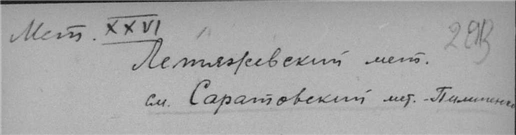 Мет. XXVI
Летяжевский мет.
см. Саратовский мет. -Пилипенко